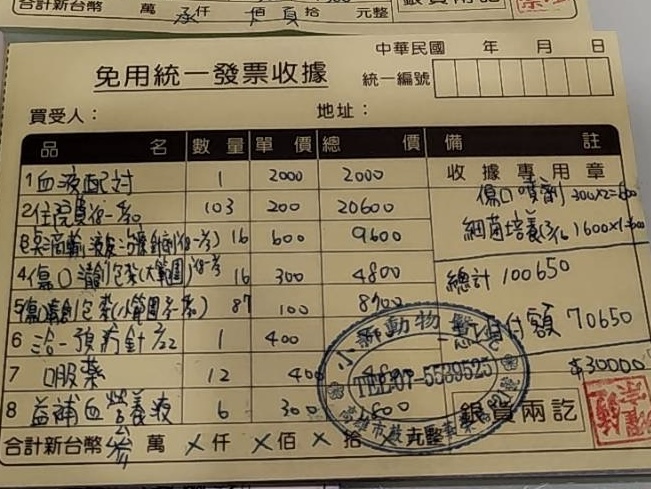 合計新台幣 萬 仟 佰 拾 元整 銀貨兩訖
中華民國 年 月 日
免用統一發票收據 統一編號
買受人： 地址：
品名 數量 單價 總價 備註
收據專用章
1 血液配対 1 2000 2000
傷口噴劑 300x2=600
2 住院費 103 200 20600
細菌培養 1600x1=1600
16 600 9600
4 傷口清創包紮(大範圍) 16 300 4800
總計 100650
5 傷口清創包紮(小範圍) 87 100 8700
6 三合一預防針 1 400
付額 70650
7 口服藥 12 400
$30000
8 益補血營養液 6 300 1800
小獅動物醫院
TEL:07-5539525
高雄市鼓
銀貨兩訖
合計新台幣 參 萬 X 仟 X 佰 X 拾 X 元整